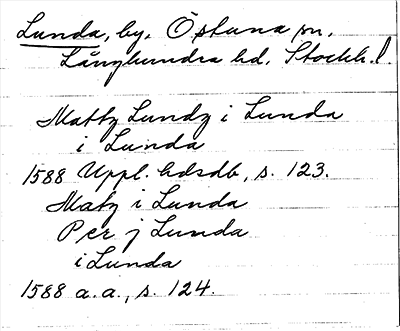 Lunda, by, Östuna sn,
Långhundra hd. Stockh. l.
Mattz Lundz i Lunda
i Lunda
1588 Uppl. hdsdb, s. 123.
Matz i Lunda
Per j Lunda
i Lunda
1588 a.a., s. 124.